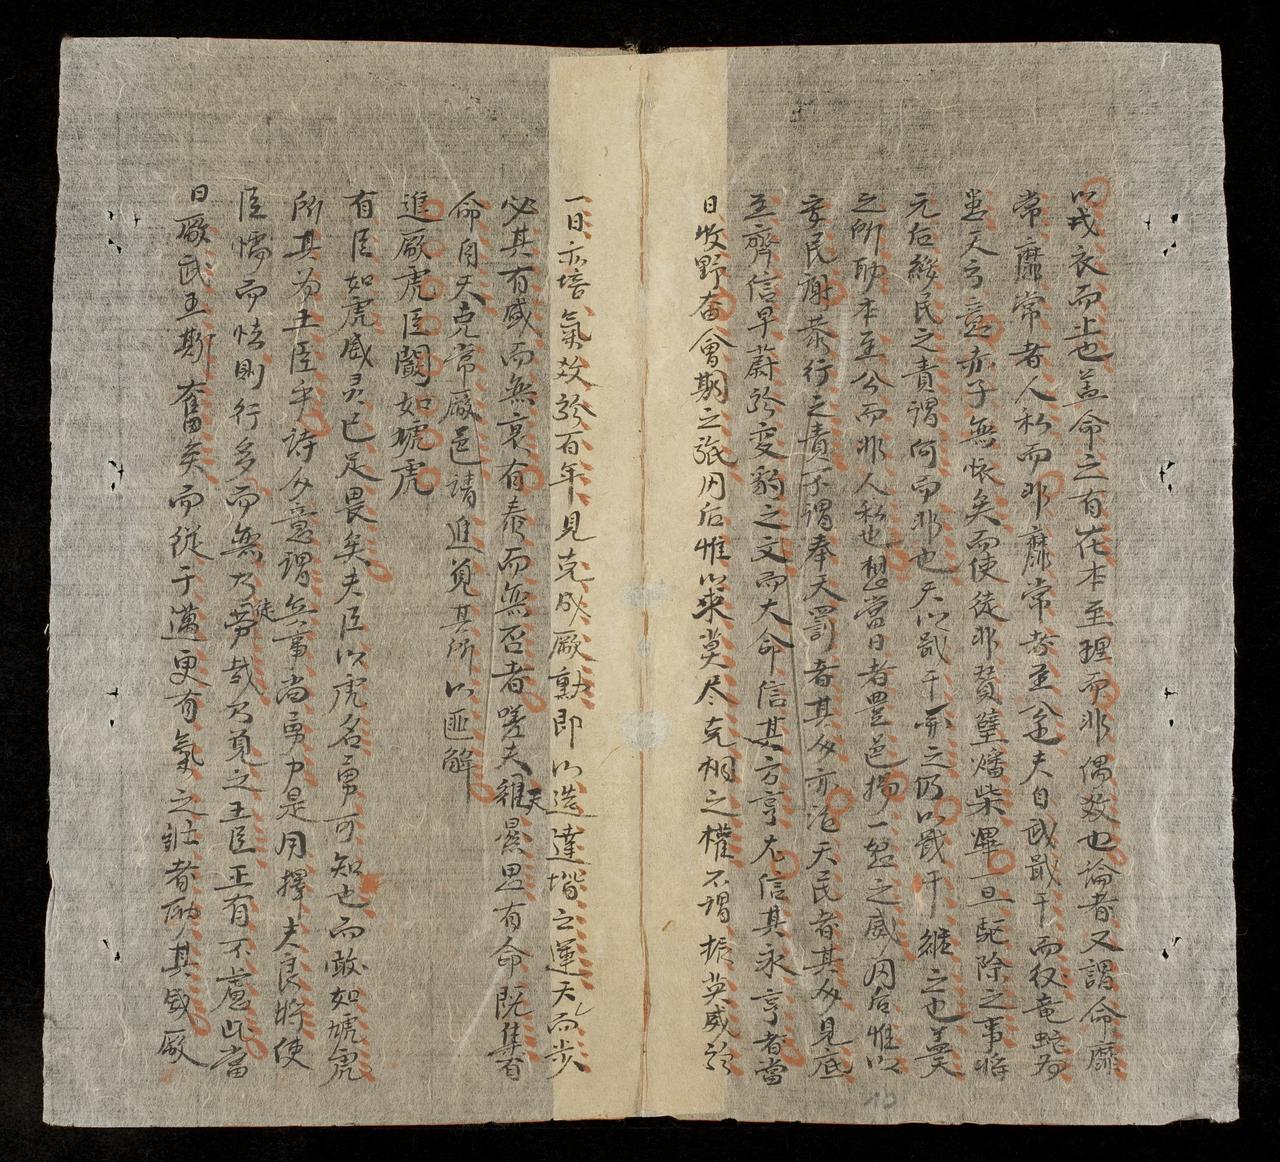 以戎衣而上也盖命之有在本至理而非偶爻也論者又謂命靡
常靡常者人私而非靡常者至公夫自武戢干而役竜蛇为
豈天亏意亦子無怀矣而使徒非賛䔽燔柴畢一旦駝除之事將
元后綏民之責謂何而非也天以戢干畀之仍以戢干継之也美
之所助本至公而非人私也想當日者豐邑揚一怒之威周后惟以
安民謝恭行之責不謂奉天罰者其多亦迄天民者其多見底
至齊信早蔚於变豹之文而大命信其方亨尤信其永亨者當
日牧野奮會期之張周后惟以來莫尽克相之權不謂振英威於
一日亦培氣效於百年見克成厥勲即以造達增之運天而步
必其有咸而無衰有泰而無否者嗟夫維天曷思有命既集有
命自天克常厥邑請進覓其所以匪解
進厥虎臣闞如虓虎
有臣如虎威灵已足畏矣夫臣以虎名勇可知也而敢如虓虎
所其为王臣乎詩多意謂兵事尚勇力是用擇夫良將使
臣懦而怯則行多而無乃徒劳哉乃覓之王臣正有不慮此當
日厥武王斯奮矣而従于邁更有氣之壮者助其威厥